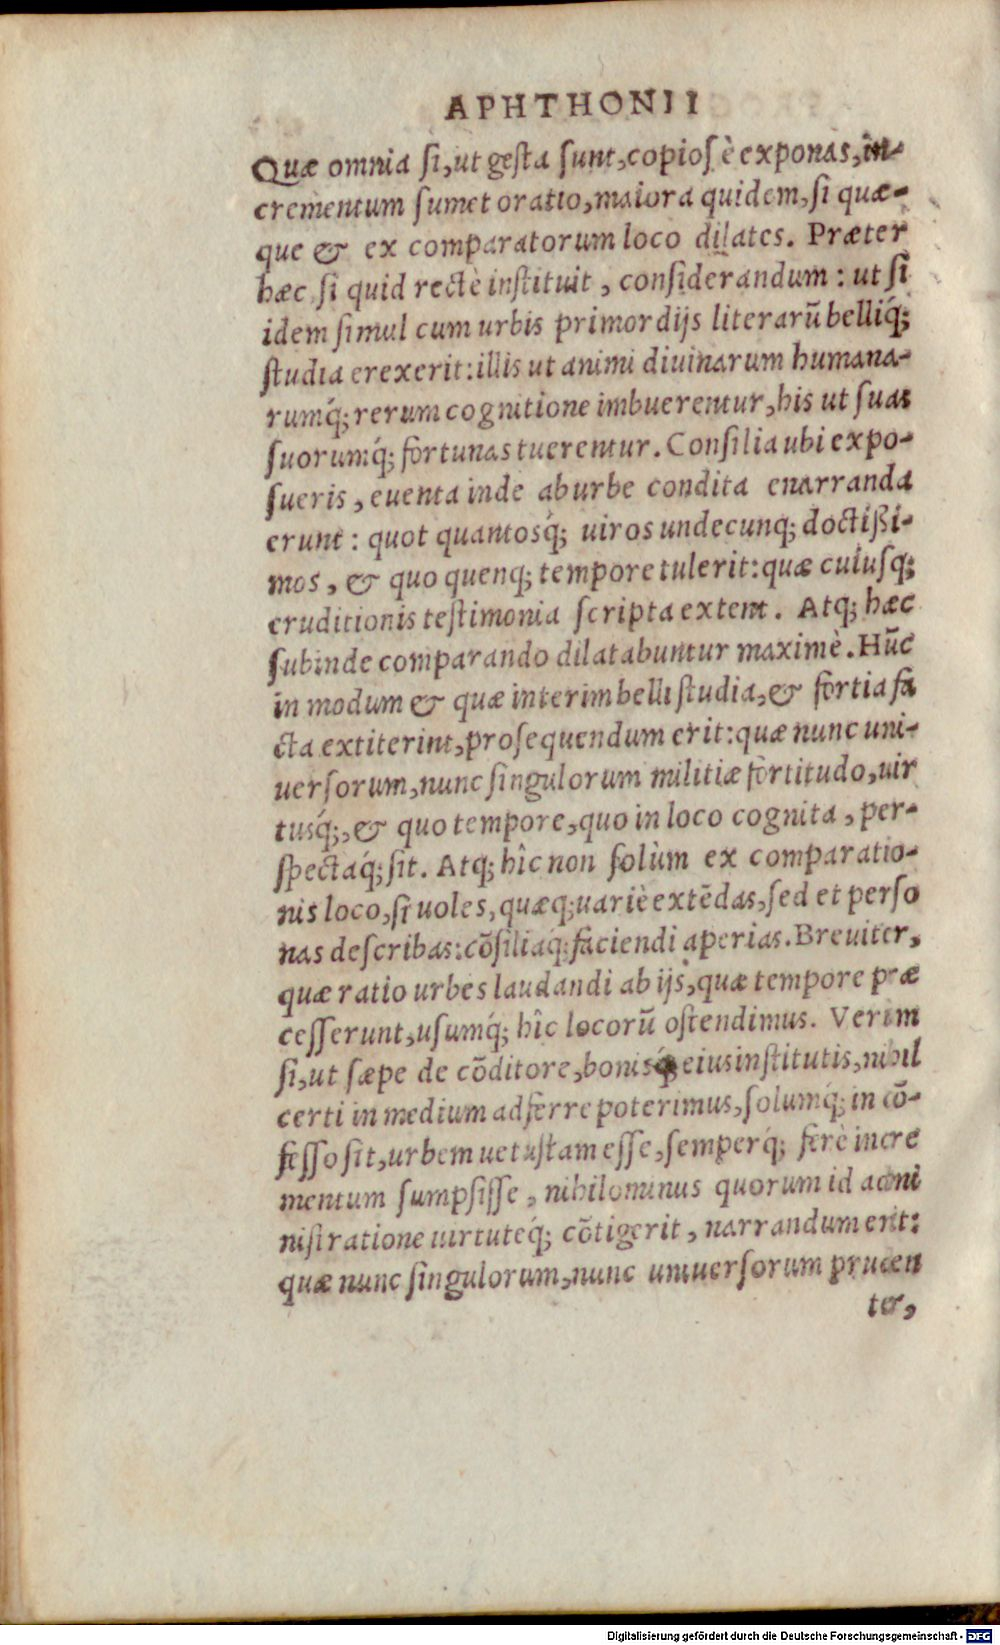 APHTHONII
Quæ omnia si, ut gesta sunt, copiosè exponas, in-
crementum sumet oratio, maiora quidem, si quæ-
que & ex comparatorum loco dilates. Præter
hæc si quid rectè instituit, considerandum: ut si
idem simul cum urbis primordijs literarũ belliq́;
studia erexerit: illis ut animi diuinarum humana-
rumq́; rerum cognitione imbuerentur, his ut suas
suorumq́; fortunas tuerentur. Consilia ubi expo-
sueris, euenta inde ab urbe condita enarranda
erunt: quot quantosq́; uiros undecunq; doctißi-
mos, & quo quenq; tempore tulerit: quæ cuiusq;
eruditionis testimonia scripta extent. Atq; hæc
subinde comparando dilatabuntur maximè. Hũc
in modum & quæ interim belli studia, & fortia fa
cta extiterint, prosequendum erit: quæ nunc uni-
uersorum, nunc singulorum militiæ fortitudo, uir
tusq́;, & quo tempore, quo in loco cognita, per-
spectaq́; sit. Atq; hîc non solùm ex comparatio-
nis loco, si uoles, quæq; uariè extẽdas, sed et perso
nas describas: cõsiliaq́; faciendi aperias. Breuiter,
quæ ratio urbes laudandi ab ijs, quæ tempore præ
cesserunt, usumq́; hîc locorũ ostendimus. Verùm
si, ut sæpe de cõditore, bonisq́; eius institutis, nihil
certi in medium adferre poterimus, solumq́; in cõ-
fesso sit, urbem uetustam esse, semperq́; ferè incre
mentum sumpsisse, nihilominus quorum id admi
nistratione uirtuteq́; cõtigerit, narrandum erit:
quæ nunc singulorum, nunc uniuersorum pruden
ter,
Digitalisierung gefördert durch die Deutsche Forschungsgemeinschaft - DFG